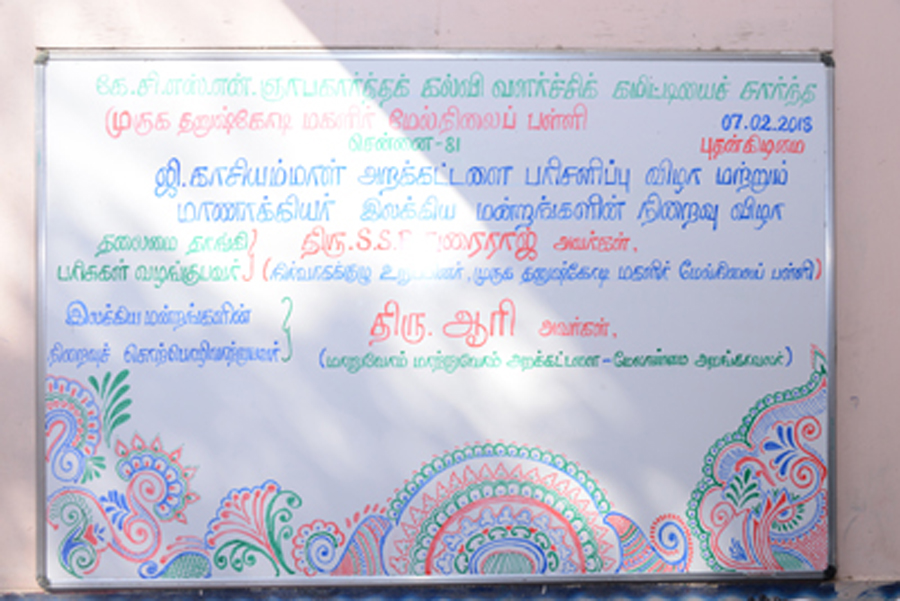 கே.சி.எஸ்.என். ஞாபகார்த்தக் கல்வி வளர்ச்சிக் கமிட்டியைச் சார்ந்த
முருக தனுஷ்கோடி மகளிர் மேல்நிலைப் பள்ளி
07.02.2018
சென்னை-81
புதன்கிழமை
ஜி.காசியம்மாள் அறக்கட்டளை பரிசளிப்பு விழா மற்றும்
மாணாக்கியர் இலக்கிய மன்றங்களின் நிறைவு விழா
தலைமை தாங்கி திரு.S.S. அவர்கள்,
பரிசுகள் வழங்குபவர் (நிர்வாகக்குழு உறுப்பினர், முருக தனுஷ்கோடி மகளிர் மேல்நிலைப் பள்ளி)
இலக்கிய மன்றங்களின் திரு. ஆரி அவர்கள்,
நிறைவுச் சொற்பொழிவாற்றுபவர் (மாறுவோம் மாற்றுவோம் அறக்கட்டளை - மேலாண்மை அறங்காவலர்)